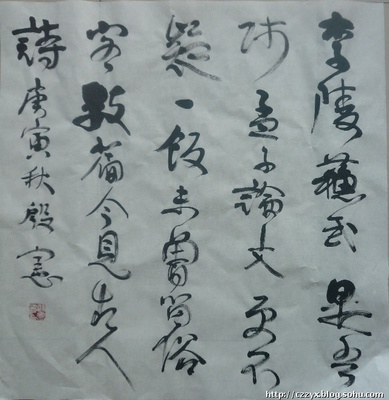 李陵蘇武是吾
师孟子論文更不
疑一飯未曾留俗
客數篇今見古人
詩庚寅秋殷憲
http://czzyx.blog.sohu.com